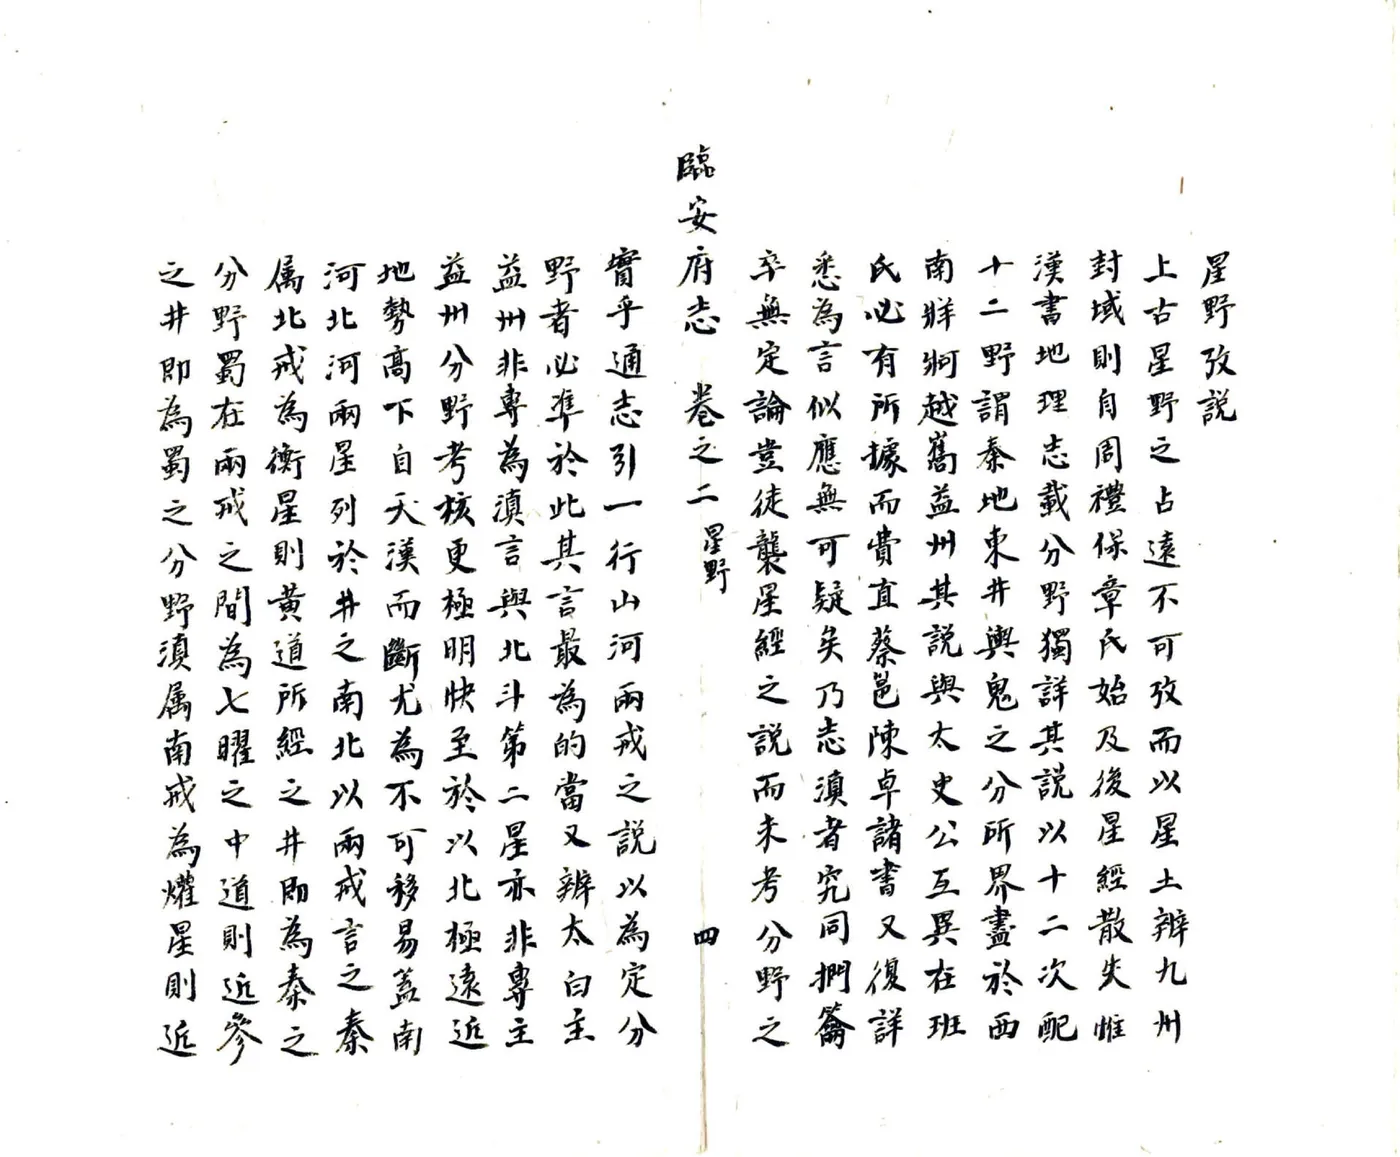 星野攷説
上古星野之占遠不可攷而以星土辨九州
封域則自周禮保章氏始及後星經散失惟
漢書地理志載分野獨詳其説以十二次配
十二野謂秦地東井輿鬼之分所界盡於西
南牂牁越嶲益州其説與太史公互異在班
氏必有所據而費直蔡邕陳卓諸書又復詳
悉為言似應無可疑矣乃志滇者究同捫籥
卒無定論豈徒襲星經之説而未考分野之
臨安府志 卷之二 星野 四
實乎通志引一行山河兩戒之説以為定分
野者必準於此其言最為的當又辨太白主
益州非專為滇言與北斗第二星亦非專主
益州分野考核更極明快至於以北極遠近
地勢高下自天漢而斷尤為不可移易蓋南
河北河兩星列於井之南北以兩戒言之秦
属北戒為衡星則黄道所經之井即為秦之
分野蜀在兩戒之間為七曜之中道則近參
之井即為蜀之分野滇属南戒為爟星則近